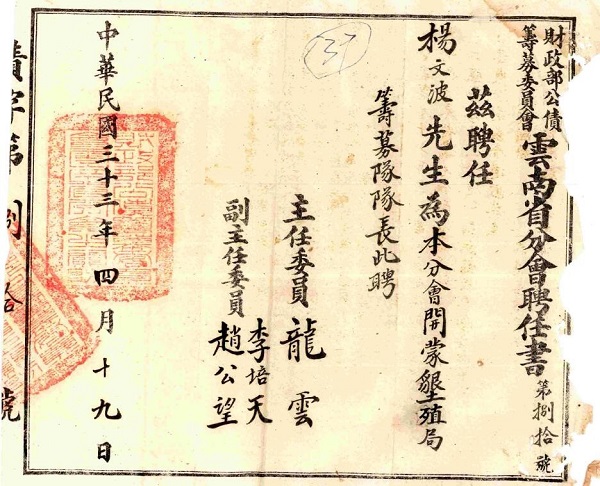 財政部公債
籌募委員會
雲南省分會聘任書
第捌拾號
茲聘任
楊文波先生為本分會開蒙墾殖局
籌募隊隊長此聘
主任委員龍雲
副主任委員
李培天
趙公望
中華民國三十三年四月十九日
37
字第捌拾號